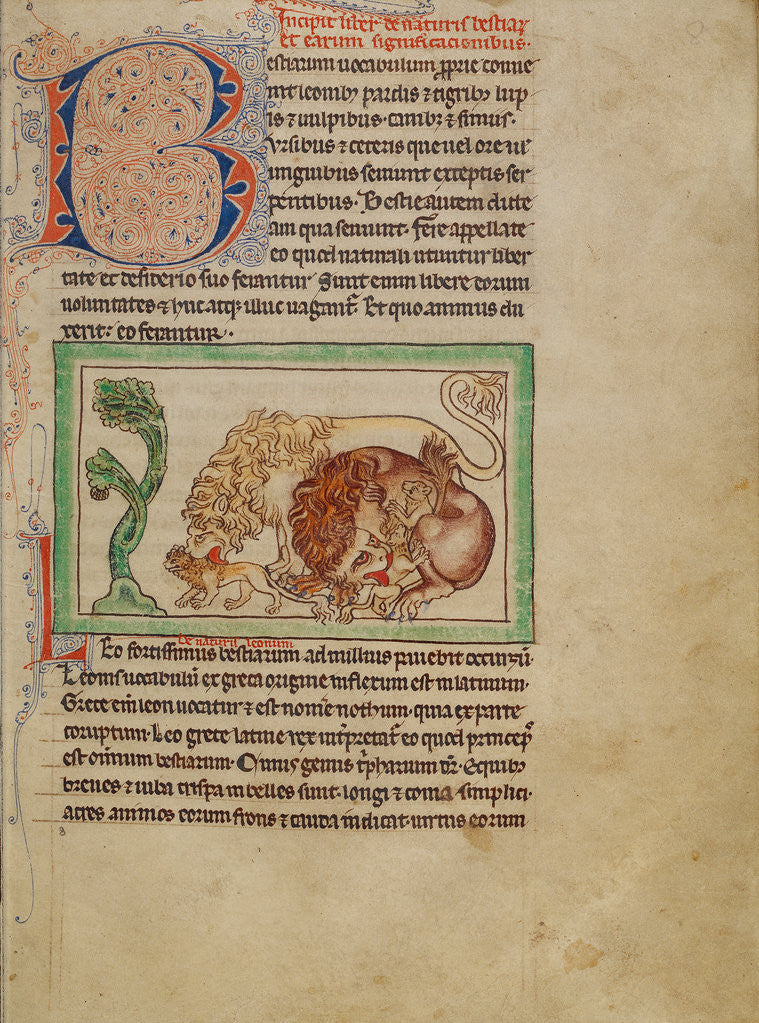 Incipit liber de naturis bestiar
et earum significacionibus.
Bestiarum uocabulum proprie conue
nit leonibꝫ pardis ⁊ tigribꝫ lup
is ⁊ uulpibus. canibꝫ ⁊ simiis.
Vrsibus ⁊ ceteris que uel ore uel
unguibus seuiunt exceptis ser
pentibus. Bestie autem dicte
am qua seuiunt. Fere appellate
eo quod naturali utuntur liber
tate et desiderio suo ferantur Sunt enim libere eorum
uoluntates ⁊ huc atqꝫ illuc uagant᷑. Et quo animus du
xerit: eo ferantur.
De naturis leonum
Leo fortissimus bestiarum ad nullius pauebit occursũ.
Leonis uocabulũ ex greca origine inflexum est in latinum.
Grece em̃ leon uocatur ⁊ est nom̃e nothum. quia ex parte
coruptum. Leo grece latine rex int᷑pretat᷑ eo quod princeps
est om̃ium bestiarum. Cuius genus t᷑pharium dr̃. E quibꝫ
breues ⁊ iuba crispa inbelles sunt. longi ⁊ coma simplici.
acres animos eorum frons ⁊ cauda indicat. uirtus eorum
8